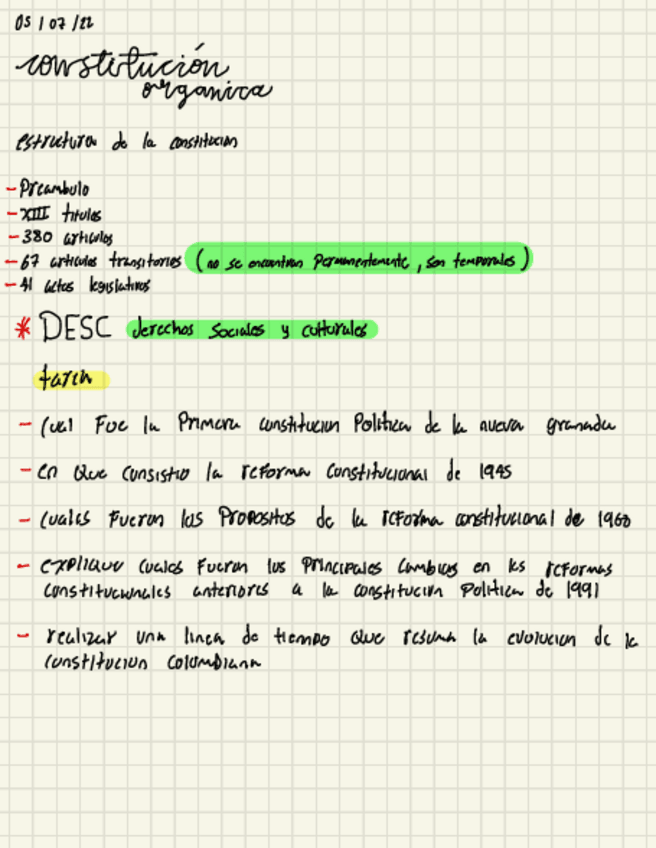 05 / 07 / 22
constitución
organica
estructura de la constitucion
- Preambulo
- XIII titulos
- 380 articulos
- 67 articulos transitorios (no se encuentran Permanentemente, son temporales)
- 41 actos legislativos
* DESC derechos Sociales y culturales
tarea
- Cual Fue la Primera constitucion Politica de la nueva granada
- en que consistio la reforma constitucional de 1945
- Cuales Fueron los Propositos de la reforma constitucional de 1960
- explique cuales Fueron los Principales cambios en las reformas
constitucionales anteriores a la constitucion Politica de 1991
- realizar una linea de tiempo que resuma la evolucion de la
constitucion colombiana